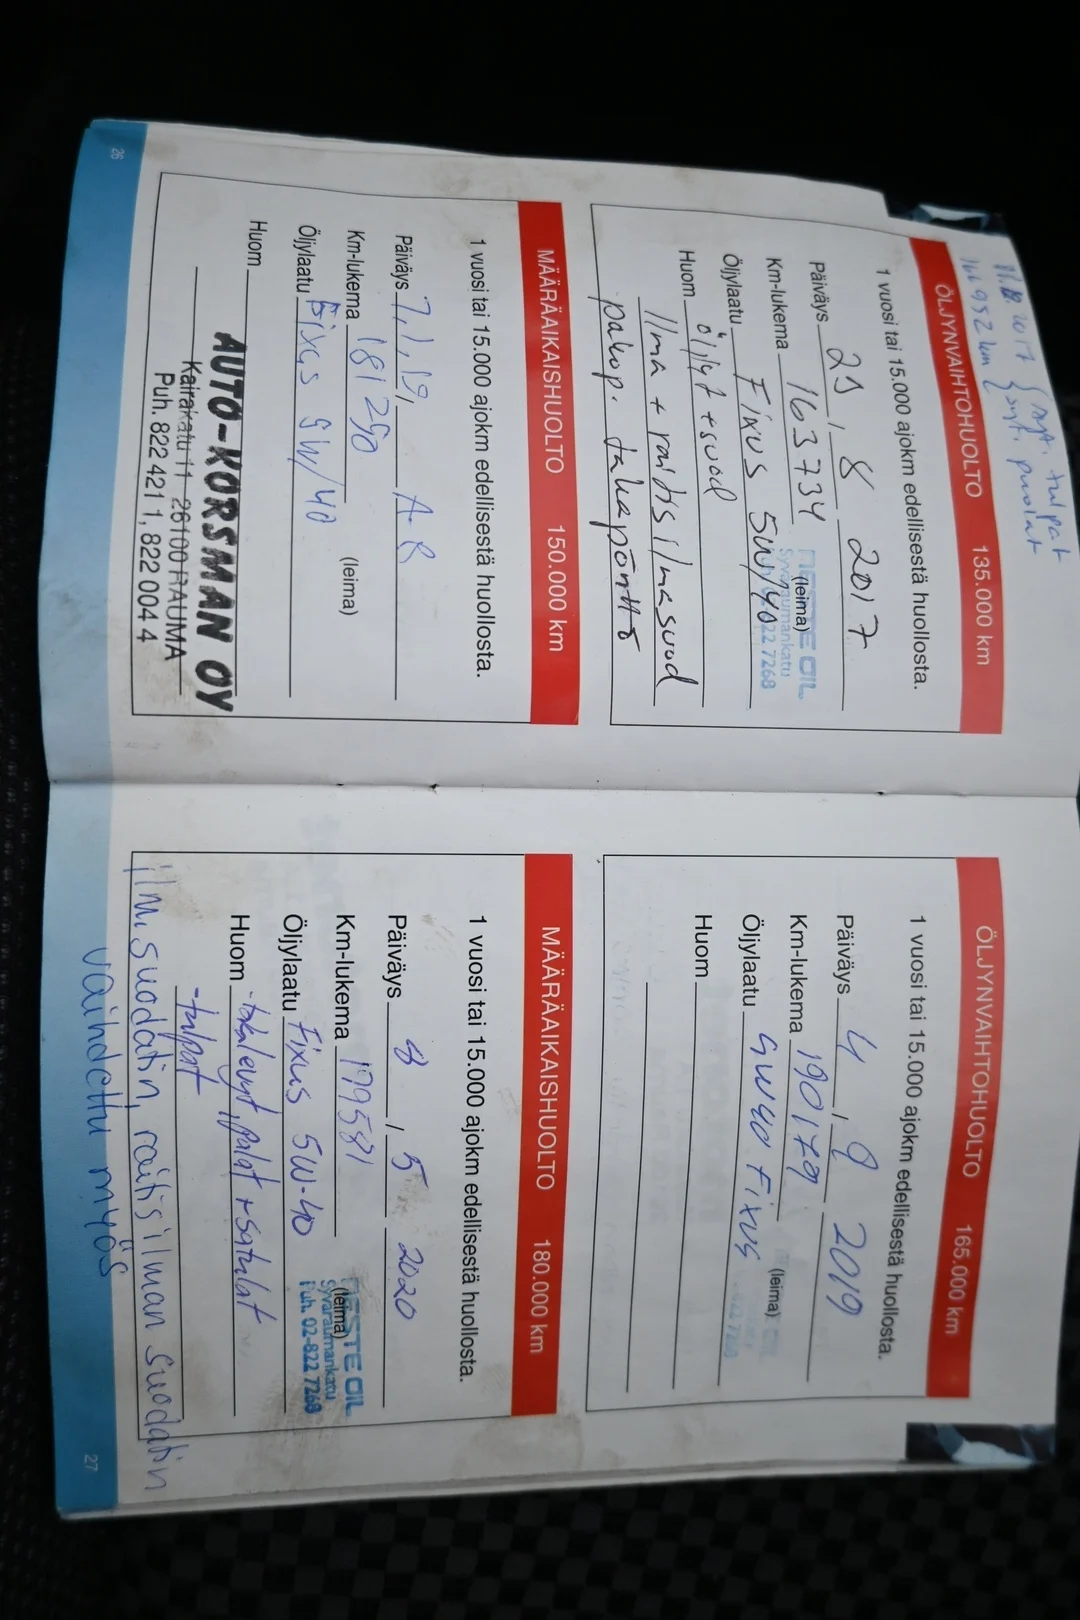 11.12.2017 { syt. tulpat
166952 km { syt. puolat
ÖLJYNVAIHTOHUOLTO 135.000 km
1 vuosi tai 15.000 ajokm edellisestä huollosta.
Päiväys 25 / 8 2017
Km-lukema 163734 (leima)
NESTE OIL
Syväraumankatu
022 7268
Öljylaatu Fixus 5W/40
Huom öljyt + suod
Ilma + raitis ilmasuod
pakop. takapönttö
MÄÄRÄAIKAISHUOLTO 150.000 km
1 vuosi tai 15.000 ajokm edellisestä huollosta.
Päiväys 7,1,19, A-R
Km-lukema 181250 (leima)
Öljylaatu Fixus 5W/40
Huom
AUTO-KORSMAN OY
Kairakatu 11 26100 RAUMA
Puh. 822 421 1, 822 004 4
26
ÖLJYNVAIHTOHUOLTO 165.000 km
1 vuosi tai 15.000 ajokm edellisestä huollosta.
Päiväys 4 / 9 2019
Km-lukema 190179 (leima)
Öljylaatu 5W40 Fixus
Huom
MÄÄRÄAIKAISHUOLTO 180.000 km
1 vuosi tai 15.000 ajokm edellisestä huollosta.
Päiväys 8 / 5 2020
Km-lukema 199581 (leima)
NESTE OIL
Syväraumankatu
Puh. 02-822 7268
Öljylaatu Fixus 5W-40
Huom -takalevyt, palat + satulat
-tulpat
ilm.suodatin, raitisilman suodatin
vaihdettu myös
27